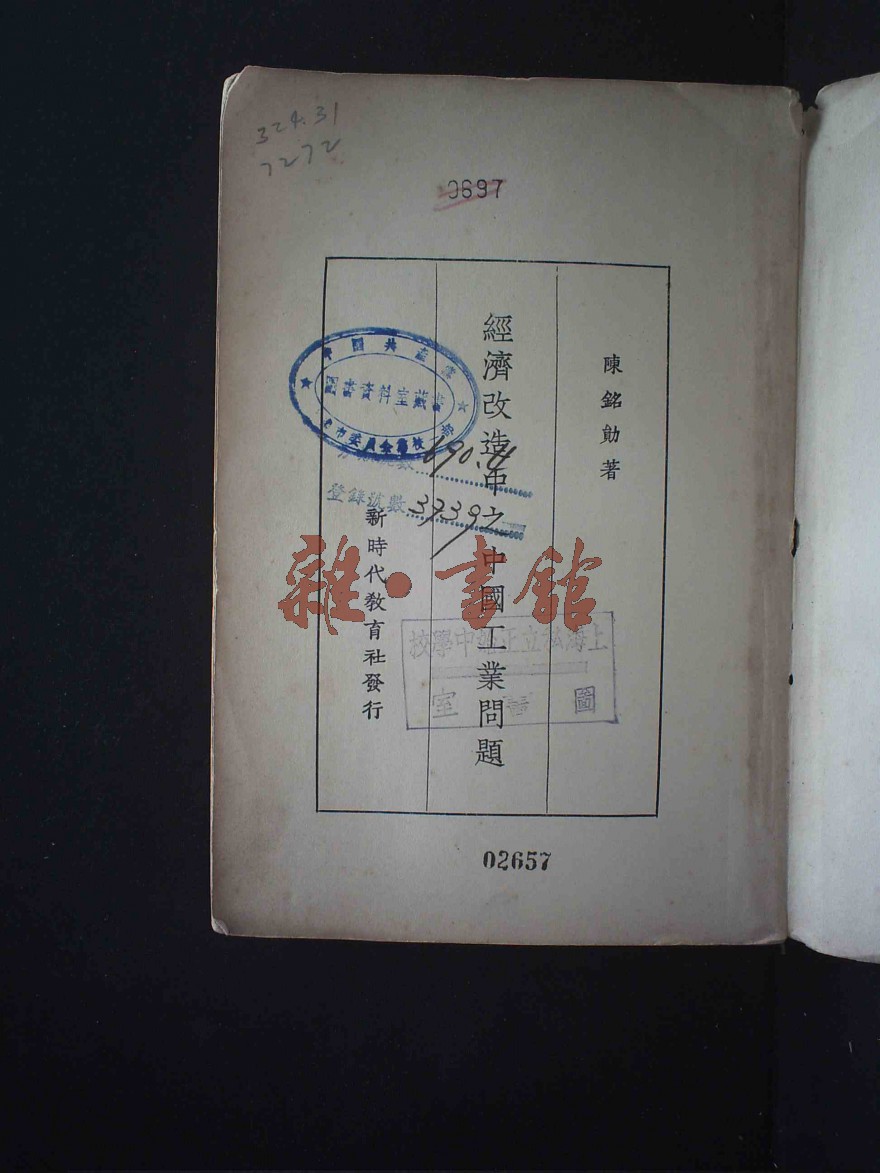 324.31
7272
0697
陳銘勛著
經濟改造中之中國工業問題
新時代教育社發行
圖書資料室藏書
市委員會黨校一部
登錄號數 37397
690.4
雜·書館
上海私立正始中學校
圖書室
02657